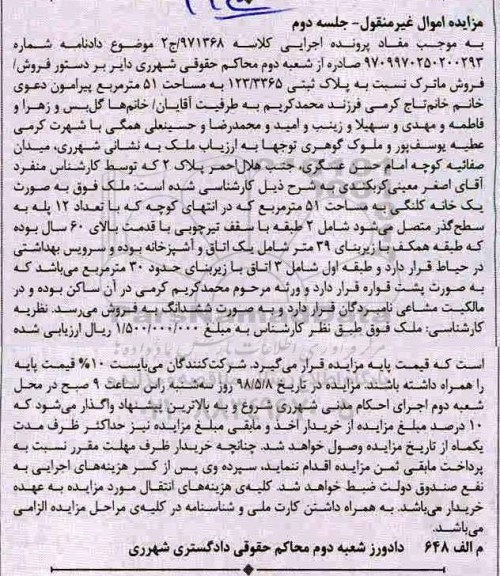 مزایده اموال غیرمنقول- جلسه دوم
به موجب مفاد پرونده اجرایی کلاسه ۹۷۱۳۶۸/ج۲ موضوع دادنامه شماره
۹۷۰۹۹۷۰۲۵۰۲۰۰۲۹۳ صادره از شعبه دوم محاکم حقوقی شهرری دایر بر دستور فروش/
فروش ماترک نسبت به پلاک ثبتی ۱۲۳/۳۳۶۵ به مساحت ۵۱ مترمربع پیرامون دعوی
خانم خانم‌تاج کرمی فرزند محمدکریم به طرفیت آقایان/ خانم‌ها گل‌پس و زهرا و
فاطمه و مهدی و سهیلا و زینب و امید و محمدرضا و حسینعلی همگی با شهرت کرمی
عطیه یوسف‌پور و ملوک گوهری توجها به ارزیاب ملک به نشانی شهرری، میدان
صفائیه کوچه امام حسن عسکری، جنب هلال‌احمر پلاک ۲ که توسط کارشناس منفرد
آقای اصغر معینی‌کربکندی به شرح ذیل کارشناسی شده است: ملک فوق به صورت
یک خانه کلنگی به مساحت ۵۱ مترمربع که در انتهای کوچه که با تعداد ۱۲ پله به
سطح‌گذر متصل می‌شود شامل ۲ طبقه با سقف تیرچوبی با قدمت بالای ۶۰ سال بوده
که طبقه همکف با زیربنای ۳۹ متر شامل یک اتاق و آشپزخانه بوده و سرویس بهداشتی
در حیاط قرار دارد و طبقه اول شامل ۳ اتاق با زیربنای حدود ۳۰ مترمربع می‌باشد که
به صورت پشت قواره قرار دارد و ورثه مرحوم محمدکریم کرمی در آن ساکن بوده و در
مالکیت مشاعی نامبردگان قرار دارد و به صورت ششدانگ به فروش می‌رسد. نظریه
کارشناسی: ملک فوق طبق نظر کارشناس به مبلغ ۱/۵۰۰/۰۰۰/۰۰۰ ریال ارزیابی شده
است که قیمت پایه مزایده قرار می‌گیرد. شرکت‌کنندگان می‌بایست ۱۰% قیمت پایه
را همراه داشته باشند. مزایده در تاریخ ۹۸/۵/۸ روز سه‌شنبه راس ساعت ۹ صبح در محل
شعبه دوم اجرای احکام مدنی شهرری شروع و به بالاترین پیشنهاد واگذار می‌شود که
۱۰ درصد مبلغ مزایده از خریدار اخذ و مابقی مبلغ مزایده نیز حداکثر ظرف مدت
یکماه از تاریخ مزایده وصول خواهد شد. چنانچه خریدار ظرف مهلت مقرر نسبت به
پرداخت مابقی ثمن مزایده اقدام ننماید، سپرده وی پس از کسر هزینه‌های اجرایی به
نفع صندوق دولت ضبط خواهد شد. کلیه‌ی هزینه‌های انتقال مورد مزایده به عهده
خریدار می‌باشد. به همراه داشتن کارت ملی و شناسنامه در کلیه‌ی مراحل مزایده الزامی
می‌باشد.
م الف ۶۴۸ دادورز شعبه دوم محاکم حقوقی دادگستری شهرری